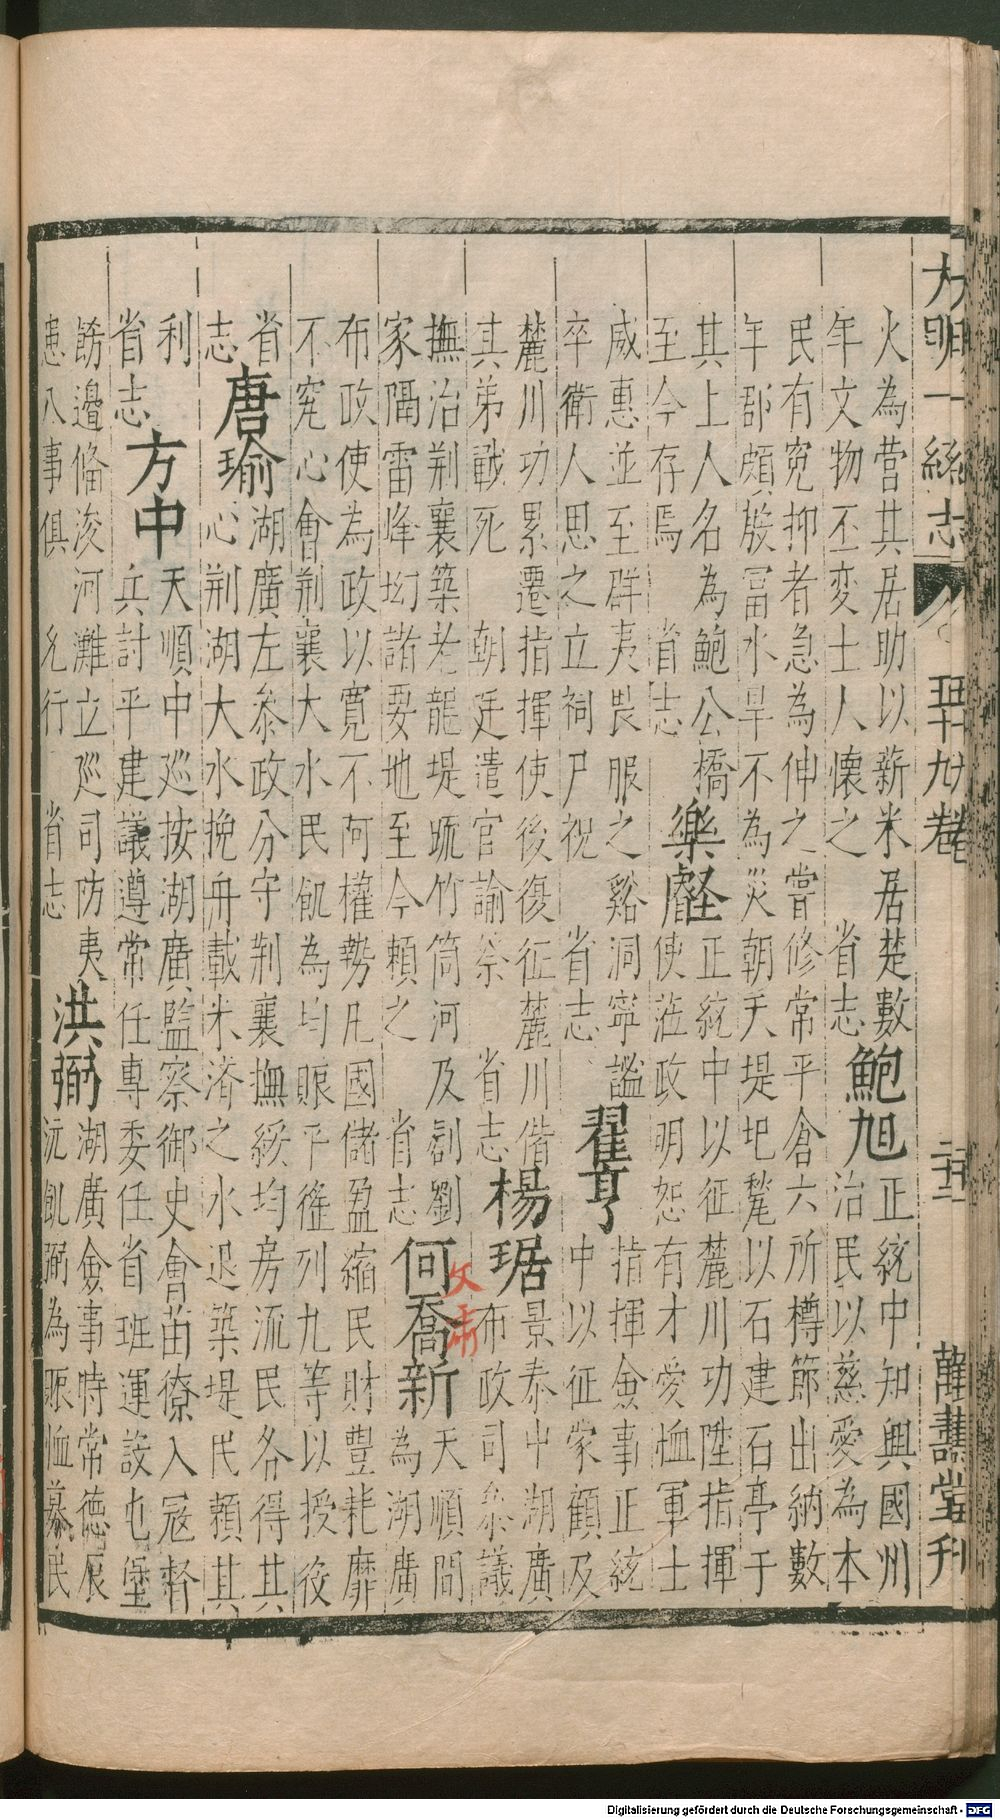 大明一統志 卷 五十九卷 二十一 萬壽堂刊
火為營其居助以薪米居楚數
年文物丕変士人懐之 省志
鮑旭
正統中知興國州
治民以慈愛為本
民有寃抑者急為伸之嘗修常平倉六所樽節出納數
年郡頗殷富水旱不為災朝天堤圯甃以石建石亭于
其上人名為鮑公橋
至今存焉 省志
樂壑
正統中以征麓川功陞指揮
使蒞政明恕有才愛恤軍士
威惠並至群夷畏服之谿洞寧謐
卒衛人思之立祠尸祝 省志
翟亨
指揮僉事正統
中以征家顧及
麓川功累遷指揮使後復征麓川偕
其弟戰死 朝廷遣官諭祭 省志
楊琚
景泰中湖廣
布政司叅議
撫治荆襄築老龍堤疏竹筒河及剳劉
家隔雷峰坳諸要地至今頼之 省志
何喬新
文肅
天順間
為湖廣
布政使為政以寛不阿權勢凡國儲盈縮民財豊耗靡
不究心會荆襄大水民飢為均賑平徭列九等以授役
省
志
唐瑜
湖廣左叅政分守荆襄撫綏均房流民各得其
心荆湖大水挽舟載米済之水退築堤民賴其
利
省志
方中
天順中廵按湖廣監察御史會苗獠入冦督
兵討平建議遵常任專委任省班運設屯堡
餝邉俻浚河灘立廵司防夷
患八事俱 允行 省志
洪弼
湖廣僉事時常徳辰
沅飢弼為賑恤募民